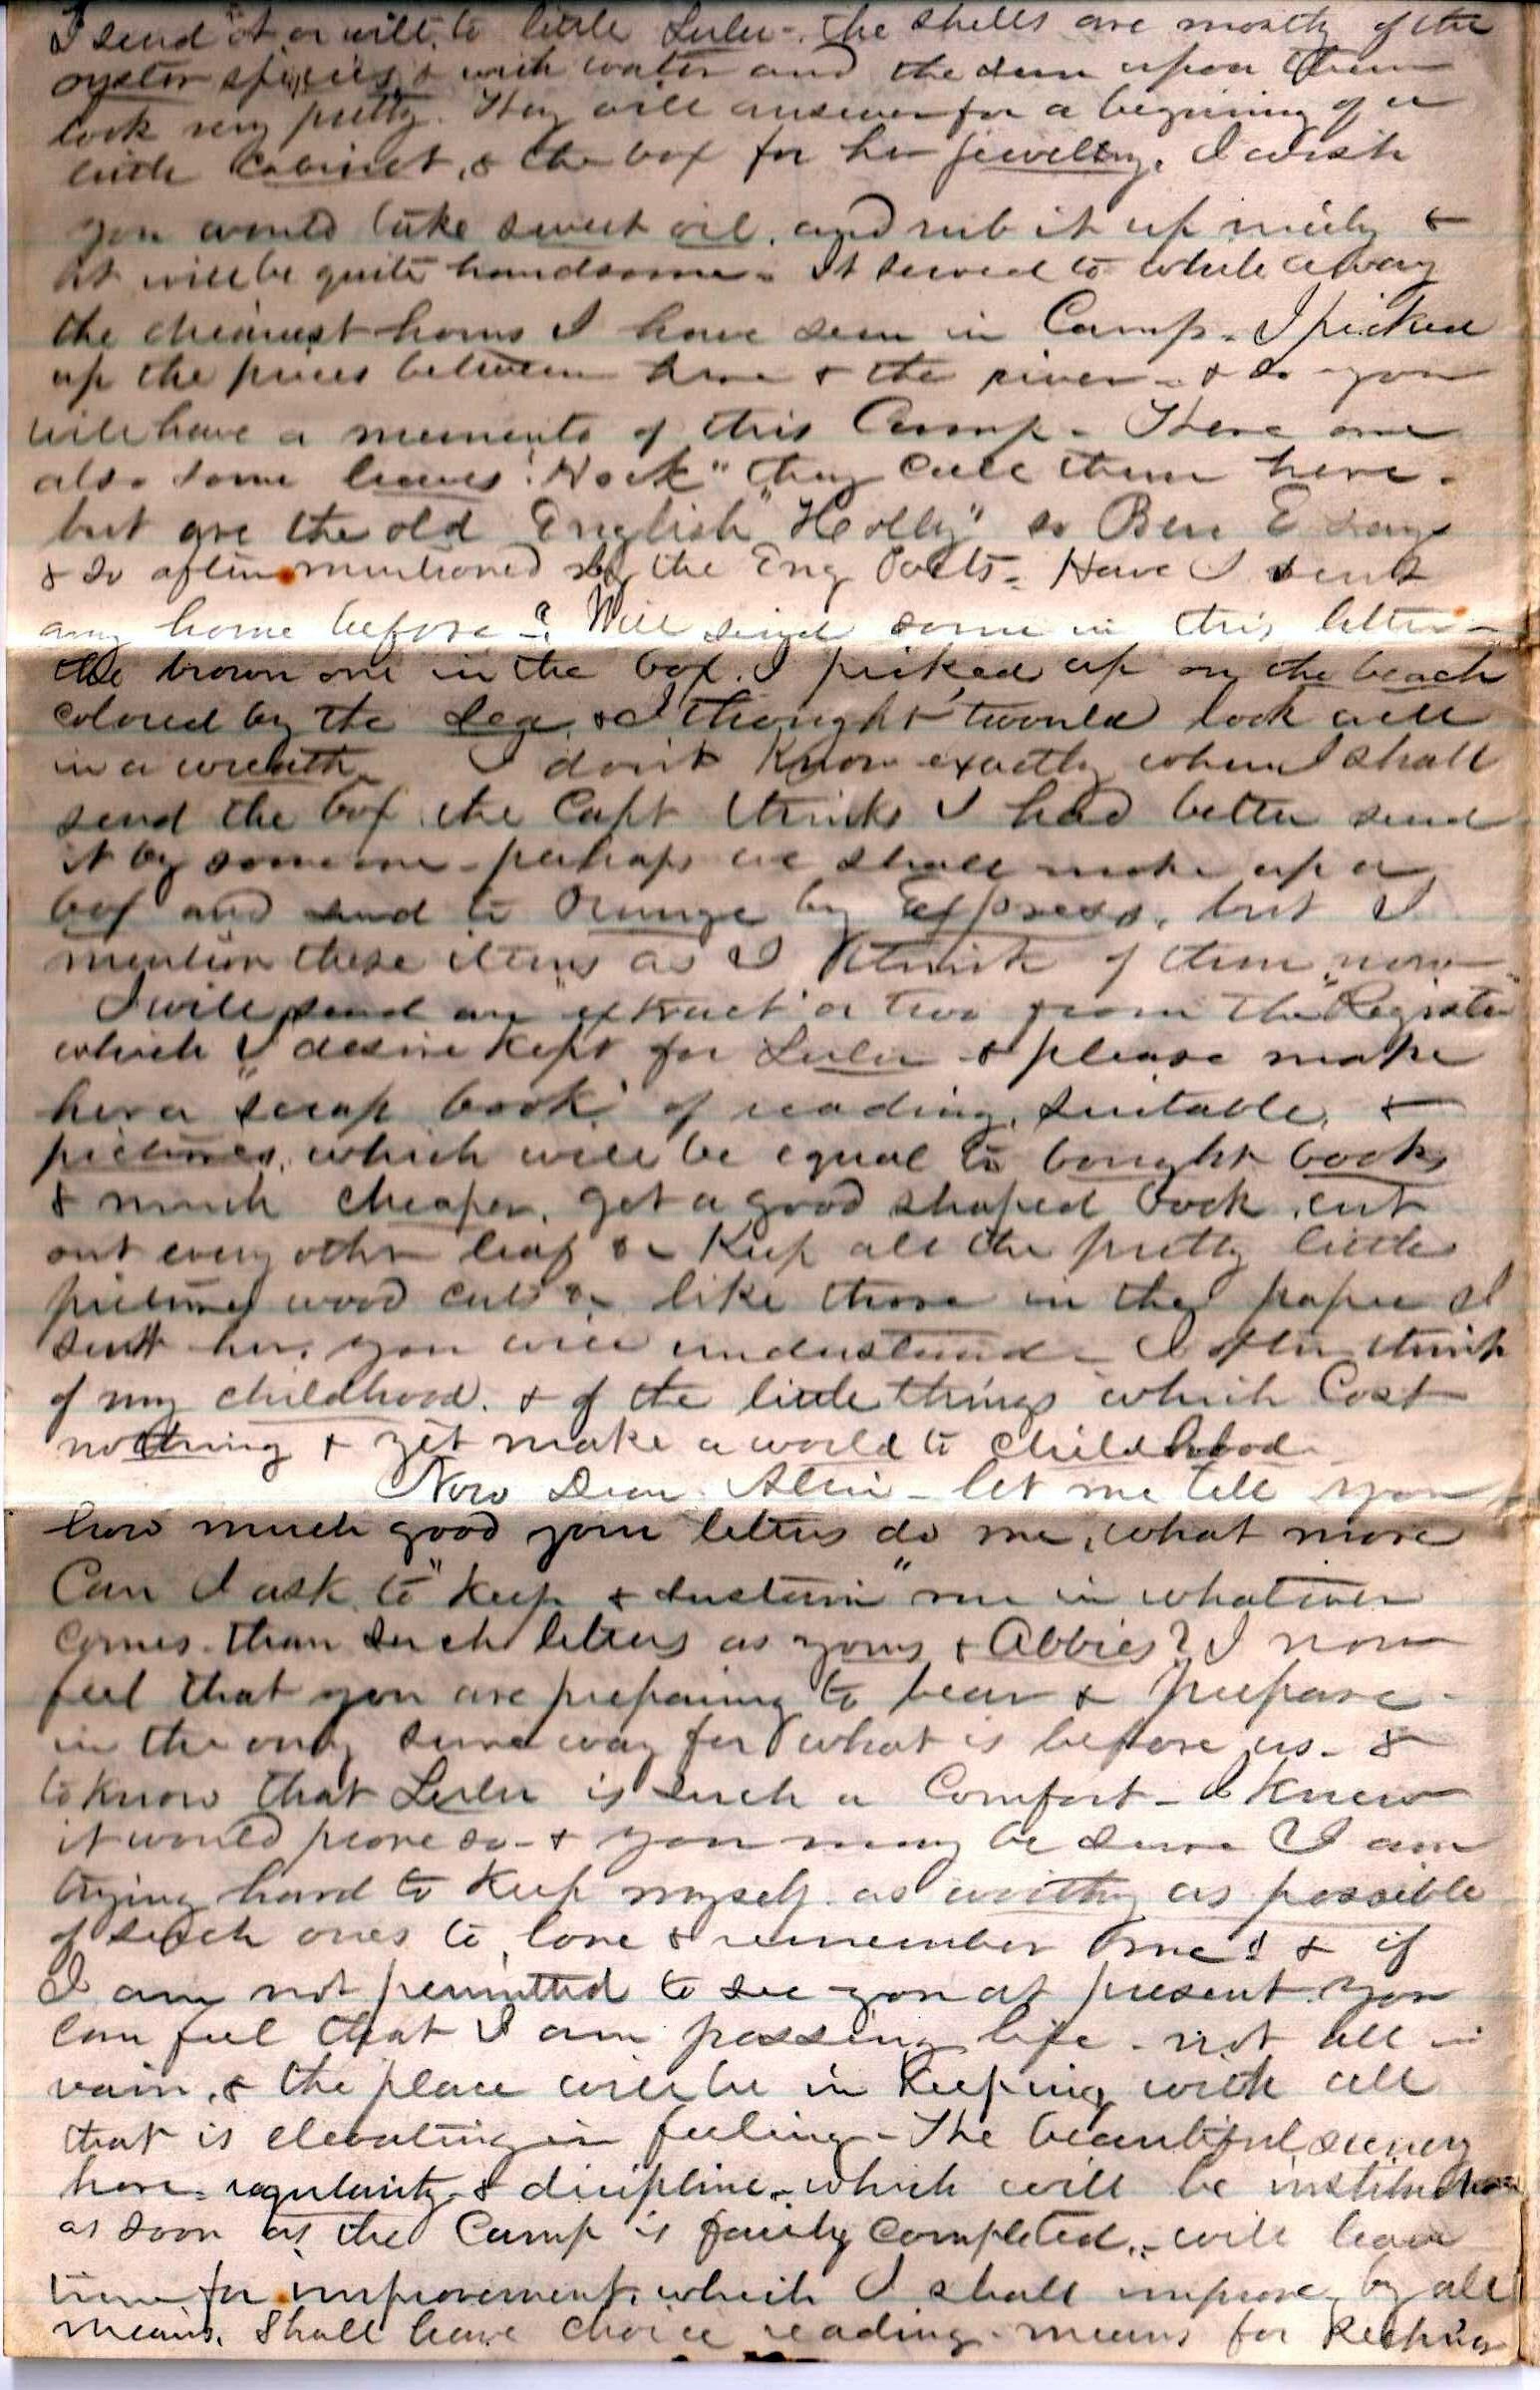 I send it or will, to little Lulu-. The shells are mostly of the
oyster species, & with water and the sun upon them
look very pretty. They will answer for a begining of a
little Cabinet, & the box for her jewelry. I wish
you would take sweet oil, and rub it up nicely &
it will be quite handsome - It served to while away
the dreariest hours I have seen in Camp - I picked
up the pieces between here & the river - & so you
will have a memento of this Camp - There are
also some leaves "Hock" they call them here -
but are the old English "Holly" so Ben E says
& so often mentioned by the Eng Poets - Have I sent
any home before -? Will send some in this letter -
the brown one in the box. I picked up on the beach
colored by the Sea, & I thought 'twould look well
in a wreath. I don't know exactly when I shall
send the box, the Capt thinks I had better send
it by some one - perhaps we shall make up a
box and send to Orange by Express, but I
mention these items as I think of them now -
I will send an "extract" or two from the "Register"
which I desire kept for Lulu & please make
her a "scrap book" of reading, suitable, &
pictures, which will be equal to bought books
& much cheaper. get a good shaped book, cut
out every other leaf & keep all the pretty little
pictures wood cuts & like those in the paper I
sent her, you will understand - I often think
of my childhood. & of the little things which Cost
nothing & yet make a world to childhood
Now Dear - let me tell you
how much good your letters do me, what more
Can I ask to "keep & sustain" me in whatever
comes - than such letters as yours & Abbies? I now
feel that you are prepairing to bear & prepare -
in the only sure way for what is before us - &
to know that Lulu is such a Comfort - I knew
it would prove so - & you may be sure I am
trying hard to keep myself as worthy as possible
of such ones to love & remember me! & if
I am not permitted to see you at present you
can feel that I am passing life - not all in
vain, & the place will be in keeping with all
that is elevating in feeling - The beautiful scenery
here - regularity & dicipline - which will be instituted
as soon as the Camp is fairly completed, - will leave
time for improvement, which I shall improve by all
means. Shall have choice reading - means for keeping